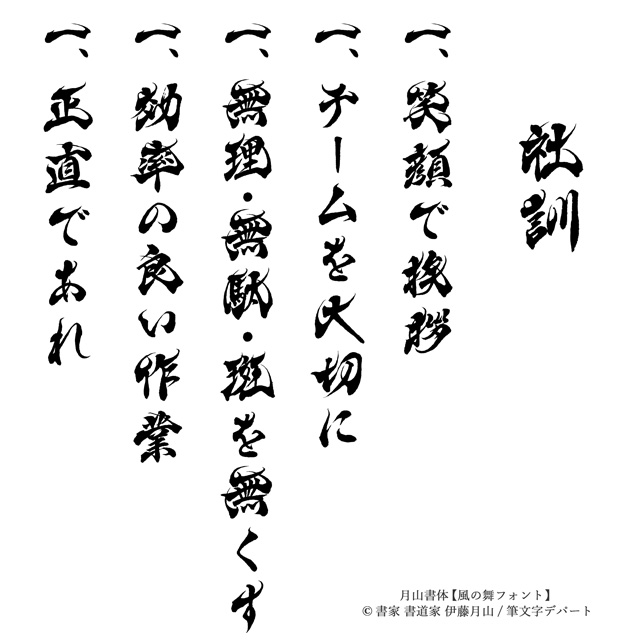 社訓
一、笑顔で挨拶
一、チームを大切に
一、無理・無駄・斑を無くす
一、効率の良い作業
一、正直であれ
月山書体【風の舞フォント】
© 書家 書道家 伊藤月山 / 筆文字デパート